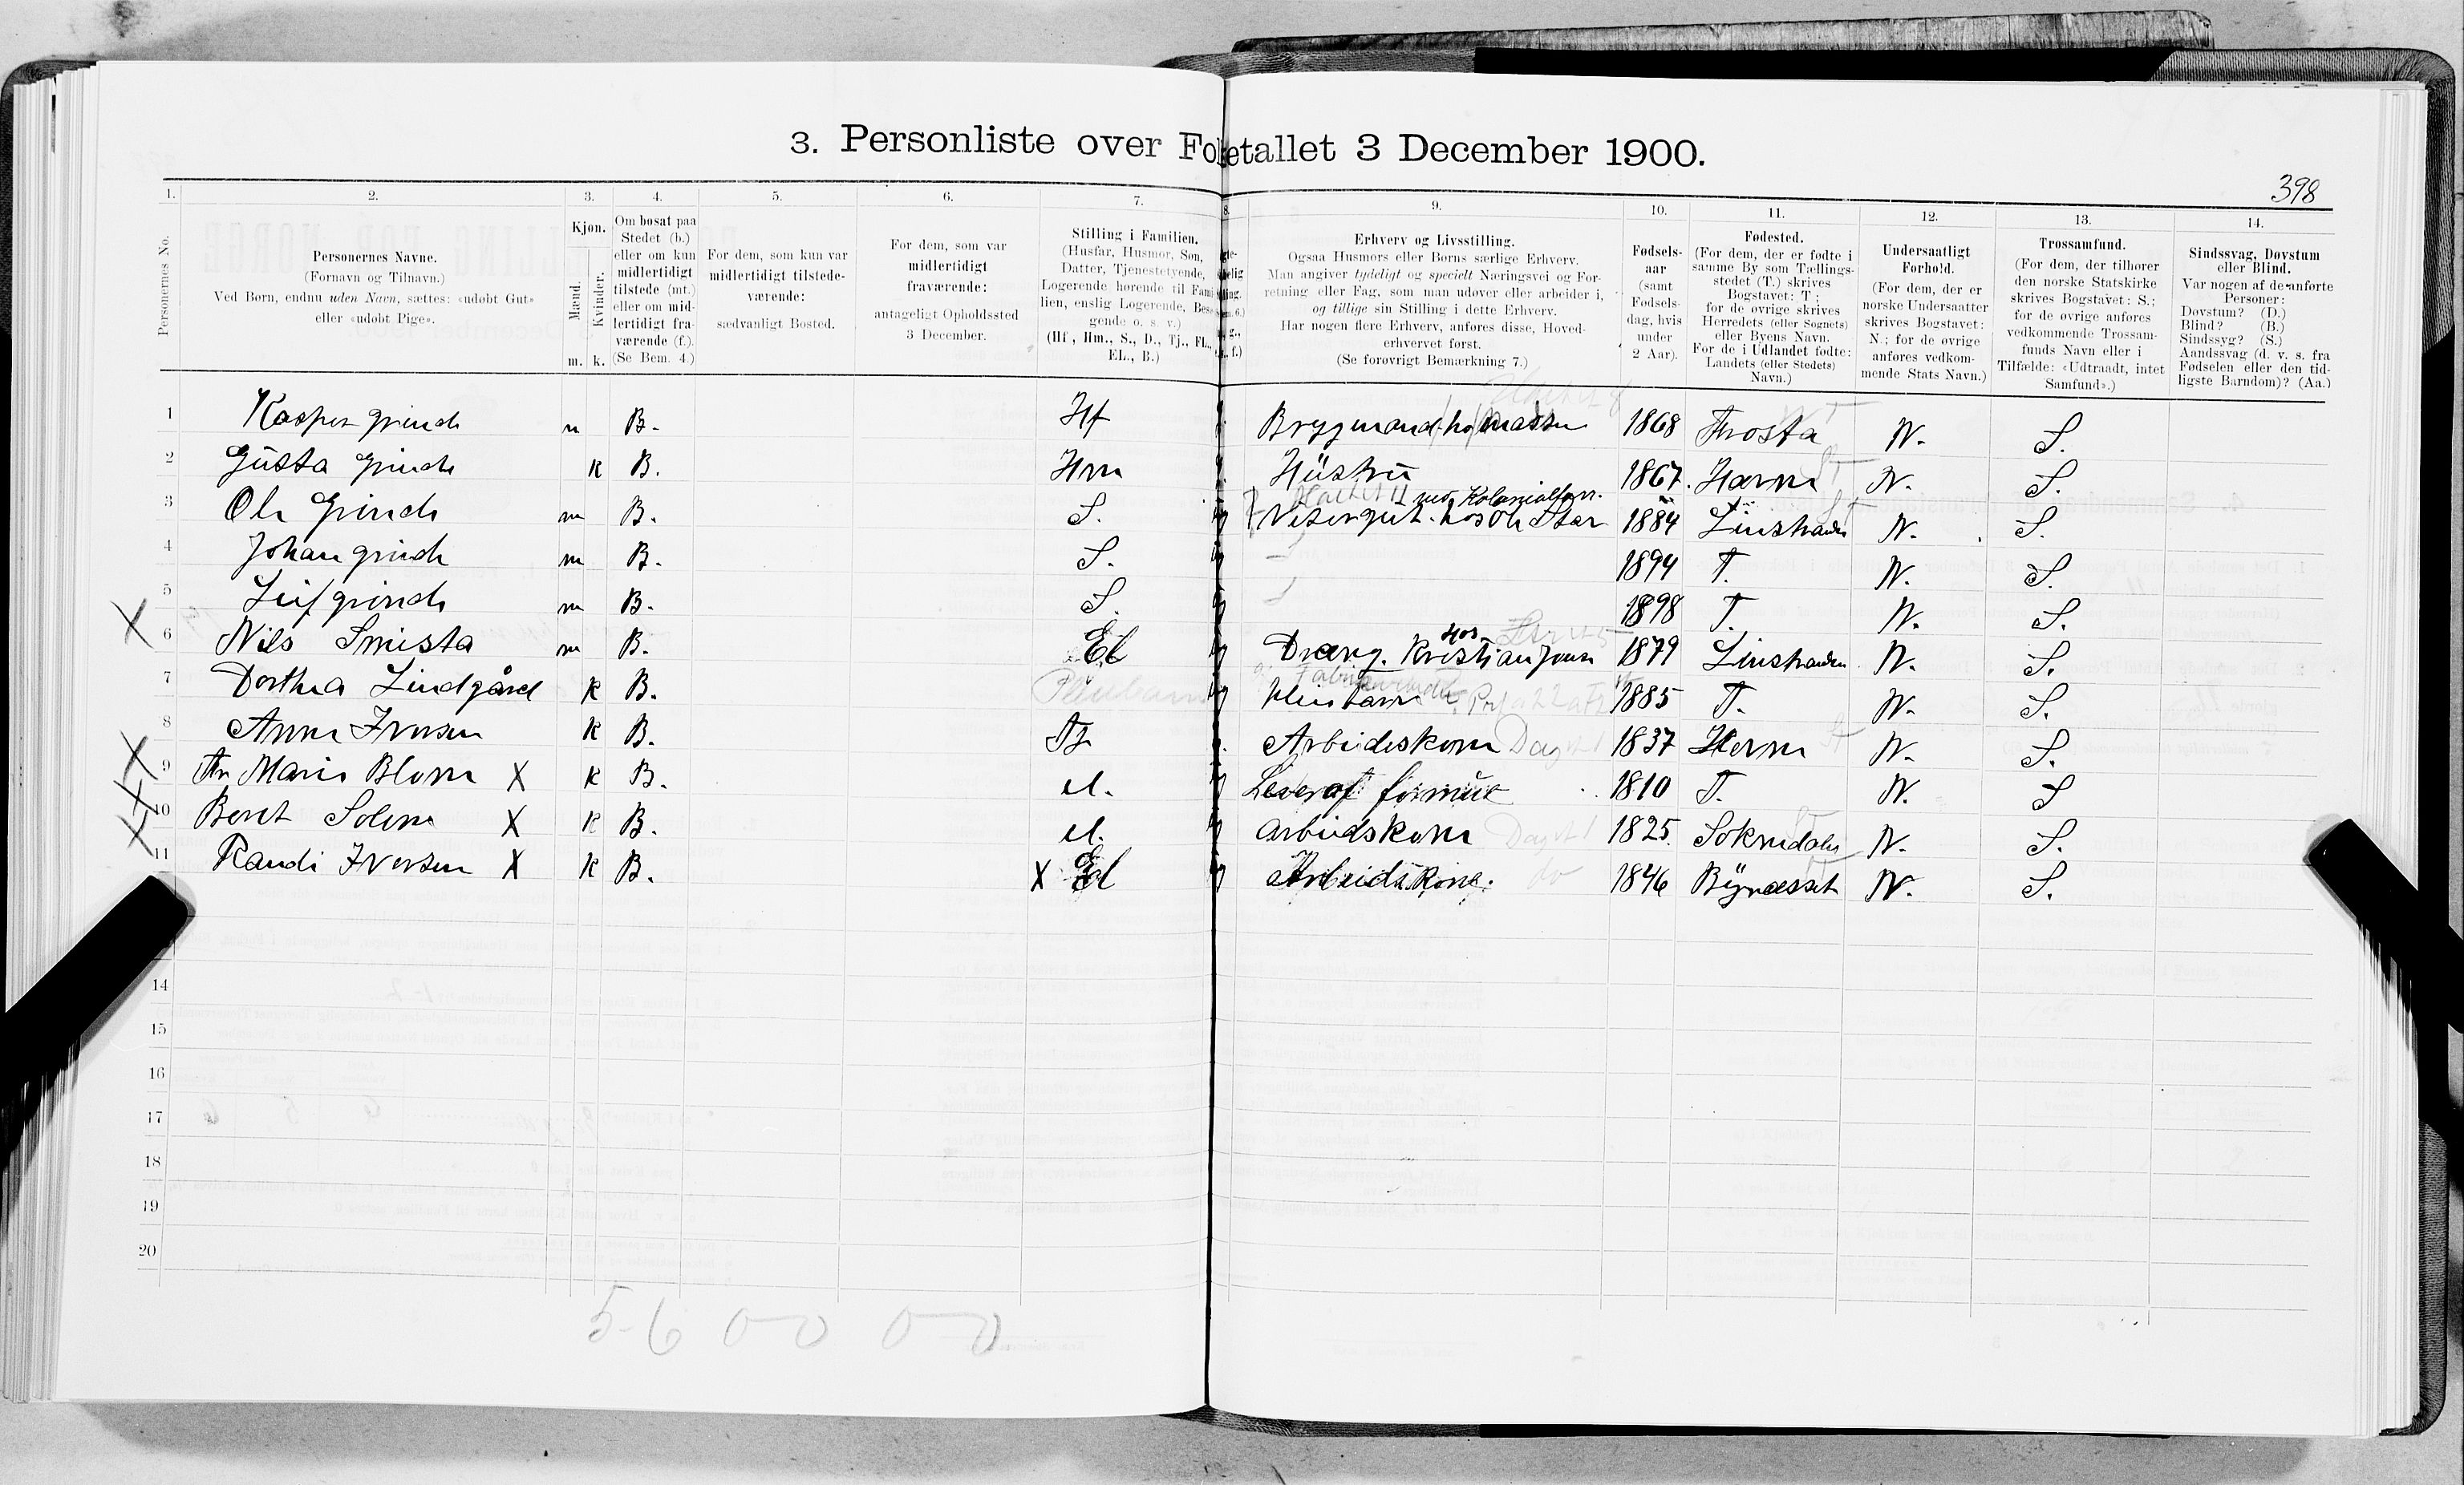 3. Personliste over Folketallet 3 December 1900.
398
1. 2. 3. 4. 5. 6. 7. 8. 9. 10. 11. 12. 13. 14.
Personernes No.
Personernes Navne.
(Fornavn og Tilnavn.)
Ved Børn, endnu uden Navn, sættes: «udøbt Gut»
eller «udøbt Pige».
Kjøn.
Mænd.
Kvinder.
m. k.
Om bosat paa
Stedet (b.)
eller om kun
midlertidigt
tilstede (mt.)
eller om mid-
lertidigt fra-
værende (f.).
(Se Bem. 4.)
For dem, som kun var
midlertidigt tilstede-
værende:
sædvanligt Bosted.
For dem, som var
midlertidigt
fraværende:
antageligt Opholdssted
3 December.
Stilling i Familien.
(Husfar, Husmor, Søn,
Datter, Tjenestetyende,
Logerende hørende til Fami-
lien, enslig Logerende, Besø-
gende o. s. v.)
(Hf., Hm., S., D., Tj., FL.,
EL., B.)
Erhverv og Livsstilling.
Ogsaa Husmors eller Børns særlige Erhverv.
Man angiver tydeligt og specielt Næringsvei og For-
retning eller Fag, som man udøver eller arbeider i,
og tillige sin Stilling i dette Erhverv.
Har nogen flere Erhverv, anføres disse, Hoved-
erhvervet først.
(Se forøvrigt Bemærkning 7.)
Fødsels-
aar
(samt
Fødsels-
dag, hvis
under
2 Aar).
Fødested.
(For dem, der er fødte i
samme By som Tællings-
stedet (T.) skrives
Bogstavet: T;
for de øvrige skrives
Herredets (eller Sognets)
eller Byens Navn.
For de i Udlandet fødte:
Landets (eller Stedets)
Navn.)
Undersaatligt
Forhold.
(For dem, der er
norske Undersaatter
skrives Bogstavet:
N.; for de øvrige
anføres vedkom-
mende Stats Navn.)
Trossamfund.
(For dem, der tilhører
den norske Statskirke
skrives Bogstavet: S.;
for de øvrige anføres
vedkommende Trossam-
funds Navn eller i
Tilfælde: «Udtraadt, intet
Samfund».)
Sindssvag, Døvstum
eller Blind.
Var nogen af de anførte
Personer:
Døvstum? (D.)
Blind? (B.)
Sindssyg? (S.)
Aandssvag (d. v. s. fra
Fødselen eller den tid-
ligste Barndom)? (Aa.)
1 Kasper Grinde m B. Hf Bryggmand 1868 Frosta N. S.
2 Gusta Grinde k B. Hm Hüstru 1867. N. S.
3 Ole Grinde m B. S. Visergut. hos Ole 1884 Linstranden N. S.
4 Johan Grinde m B. S. 1894 T. N. S.
5 Leif Grinde m B. S. 1898 T. N. S.
X
6 Nils Smista m B. El Dræng. hos Kristian 1879 Linstranden N. S.
7 Dorthea Lindgård k B. 1885 T. N. S.
8 Anne Iversen k B. Arbeidskone 1837 N. S.
X 9 Marie Blom X k B. el. Lever af formue 1810 T. N. S
X 10 Beret Solem X k B. el. Arbeidskone Dagst 1 1825. Soknedalen N. S.
X 11 Randi Iversen X k B. X El Arbeidskone. do 1846 Bynæsset N. S.
14
15
16
17
18
19
20
5-6 0-0 0-0